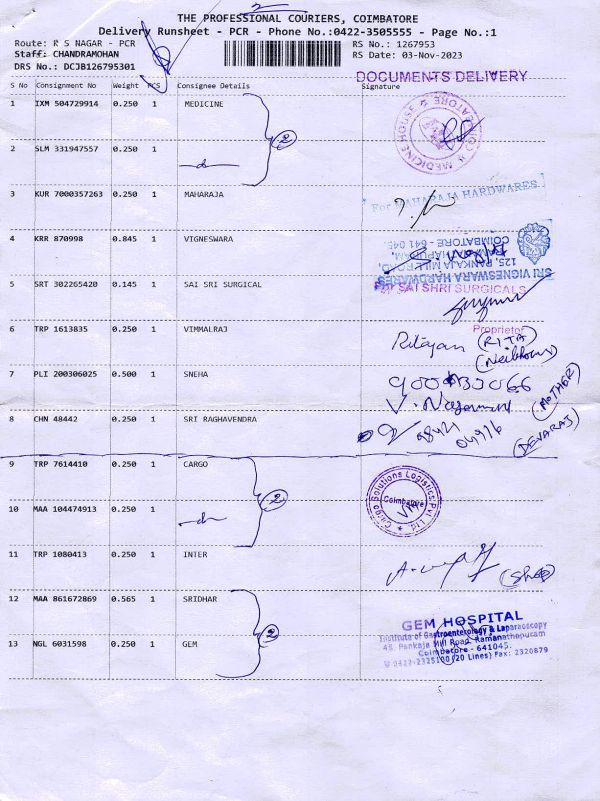 THE PROFESSIONAL COURIERS, COIMBATORE
Delivery Runsheet - PCR - Phone No.:0422-3505555 - Page No.:1
Route: R S NAGAR - PCR
RS No.: 1267953
Staff: CHANDRAMOHAN
RS Date: 03-Nov-2023
DRS No.: DCJB126795301
DOCUMENTS DELIVERY
S No Consignment No Weight PCS Consignee Details Signature
1 IXM 504729914 0.250 1 MEDICINE
2
MEDICINE HOUSE
2 SLM 331947557 0.250 1
3 KUR 7000357263 0.250 1 MAHARAJA
For MAHARAJA HARDWARES
4 KRR 870998 0.845 1 VIGNESWARA
SRI VIGNESWARA HARDWARES
125, PANKAJA MILL ROAD,
RAMANATHAPURAM,
COIMBATORE - 641 045
5 SRT 302265420 0.145 1 SAI SRI SURGICAL
SAI SHRI SURGICALS
Proprietor
6 TRP 1613835 0.250 1 VIMMALRAJ
(RITA)
7 PLI 200306025 0.500 1 SNEHA
(MOTHER)
8 CHN 48442 0.250 1 SRI RAGHAVENDRA
98421
04916
(DEVARAJ)
9 TRP 7614410 0.250 1 CARGO
2
Cargo Solutions Logistics Pvt. Ltd.
Coimbatore
10 MAA 104474913 0.250 1
11 TRP 1080413 0.250 1 INTER
12 MAA 861672869 0.565 1 SRIDHAR
2
GEM HOSPITAL
Institute of Gastroenterology & Laparoscopy
45, Pankaja Mill Road, Ramanathapuram
Coimbatore - 641045.
0422-2325100 (20 Lines) Fax: 2320879
13 NGL 6031598 0.250 1 GEM